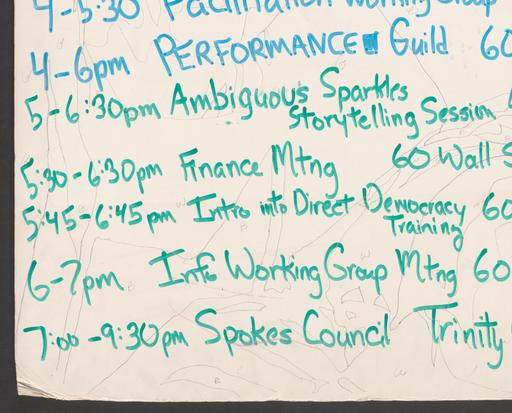 4-5:30 Facilitation Working Group
4-6pm PERFORMANCE Guild 60
5-6:30pm Ambiguous Sparkles
Storytelling Session
5:30-6:30pm Finance Mtng 60 Wall S
5:45-6:45pm Intro into Direct Democracy 60
Training
6-7pm Info Working Group Mtng 60
7:00-9:30pm Spokes Council Trinity